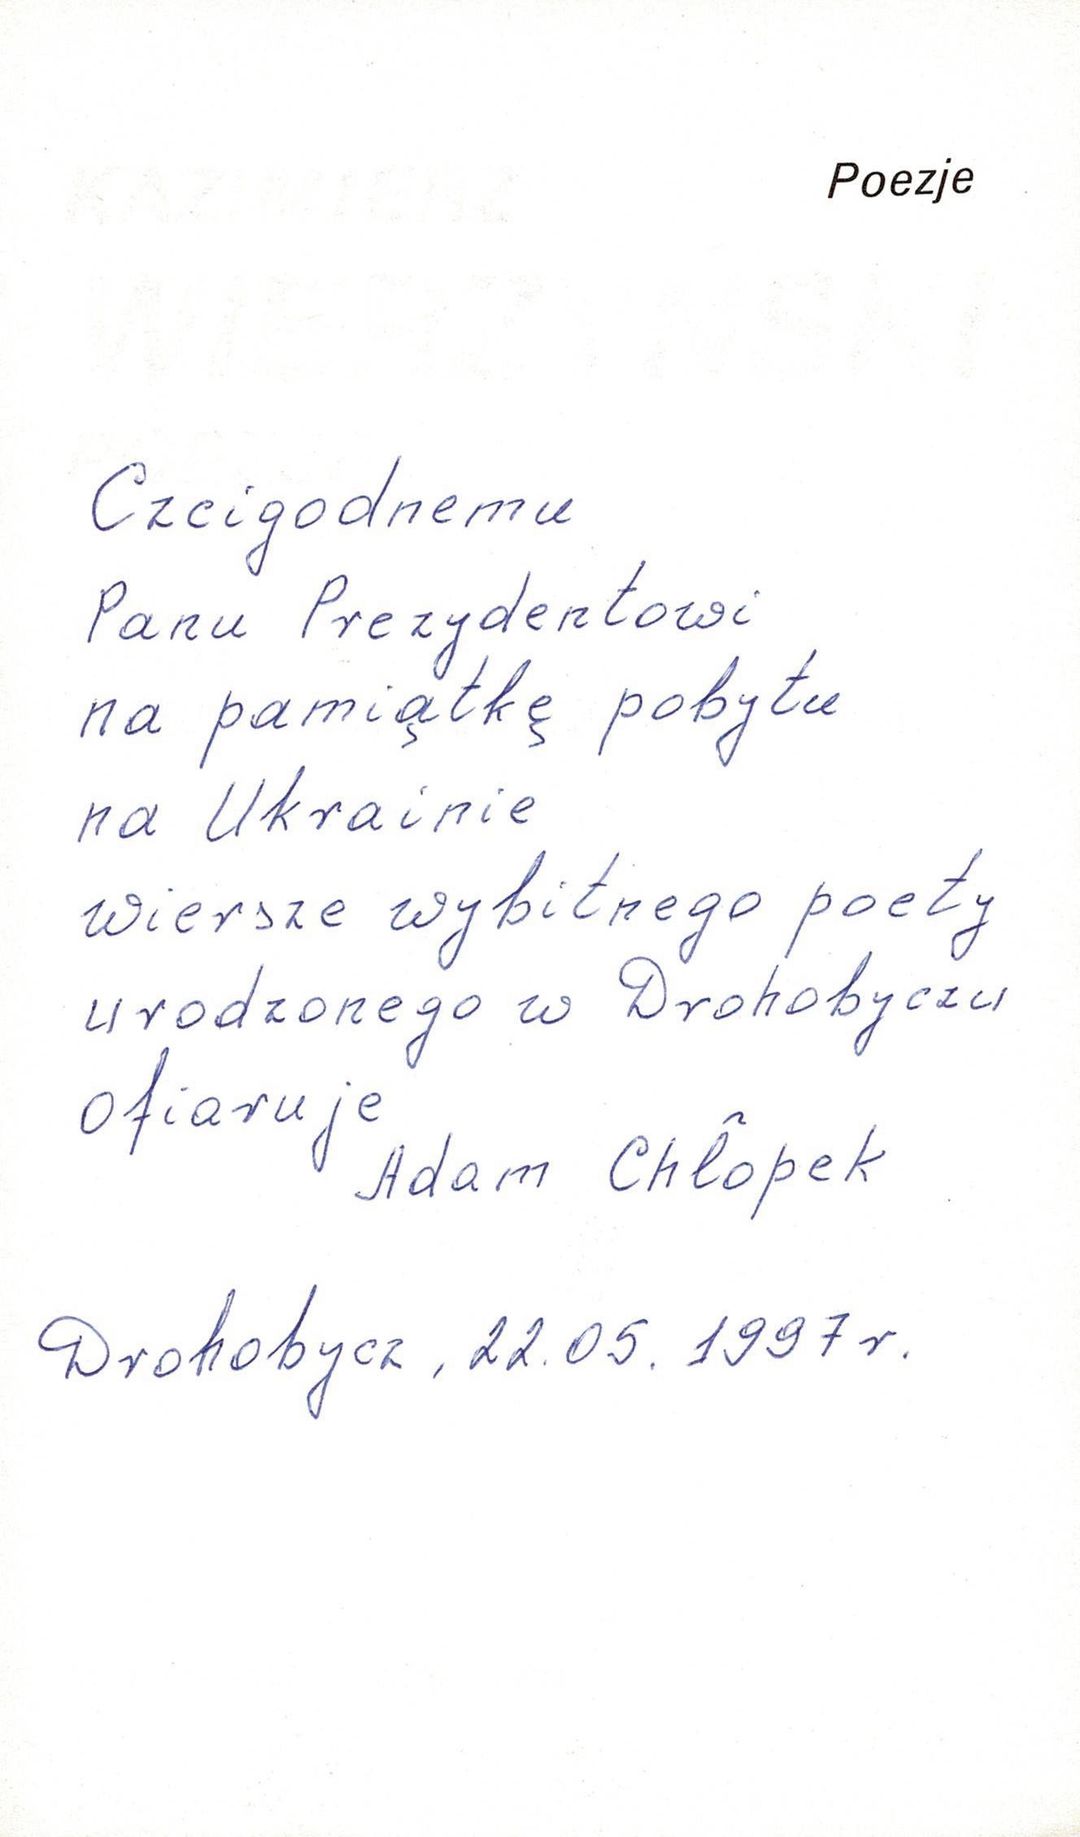 Poezje
KAZIMIERZ
WIERZYŃSKI
Czcigodnemu
Panu Prezydentowi
na pamiątkę pobytu
na Ukrainie
wiersze wybitnego poety
urodzonego w Drohobyczu
ofiaruje
Adam Chłopek
Drohobycz, 22.05.1997r.